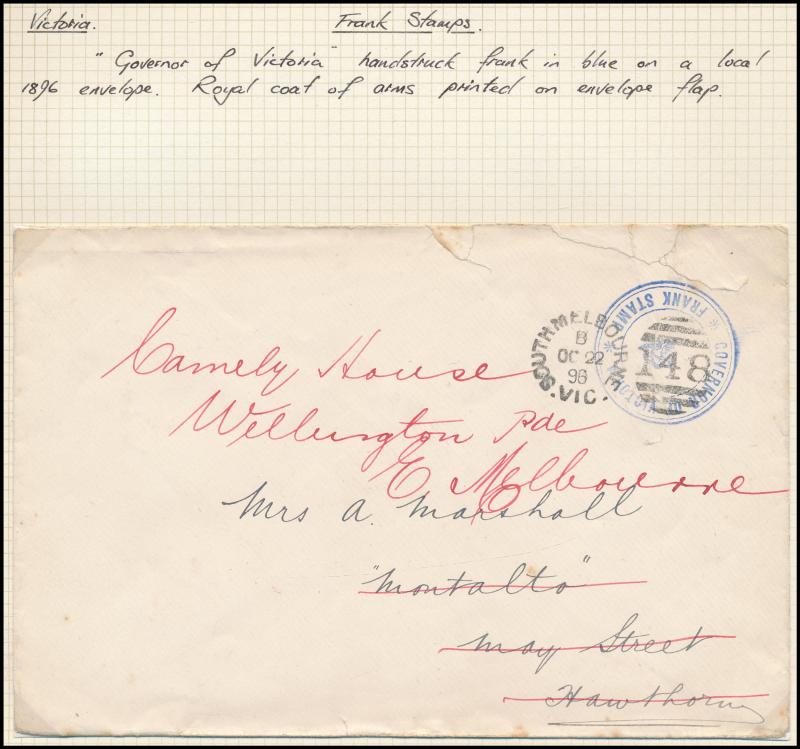 Victoria. Frank Stamps.
"Governor of Victoria" handstruck frank in blue on a local
1896 envelope. Royal coat of arms printed on envelope flap.
SOUTH MELBOURNE
B
OC 22
96
VIC.
148
GOVERNOR OF VICTORIA * FRANK STAMP *
Camely House
Wellington Pde
E Melbourne
Mrs A. Marshall
"Montalto"
May Street
Hawthorn